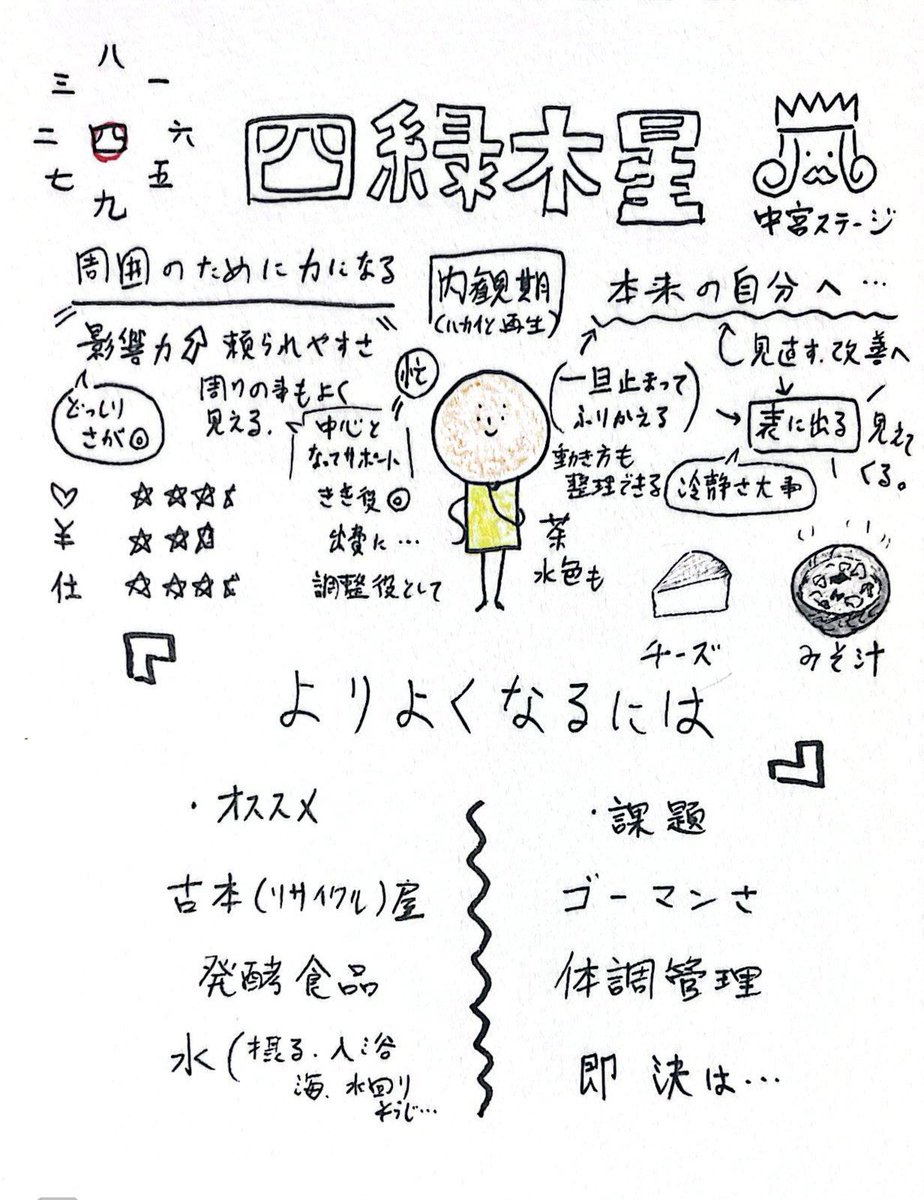 八
三 一
二 四 六
七 五
九
四緑木星
中宮ステージ
周囲のために力になる
影響力 頼られやすさ
どっしり
さが◎
周りの事もよく
見える、
忙
中心と
なってサポート
内観期
(ハカイと再生)
本来の自分へ…
見直す、改善へ
(一旦止まって
ふりかえる)
動き方も
整理できる
表に出る
見えて
くる。
冷静さ大事
♡ ☆☆☆ きき役◎
¥ ☆☆ 出費に…
仕 ☆☆☆ 調整役として
茶
水色も
チーズ
みそ汁
『よりよくなるには』
・オススメ
古本(リサイクル)屋
発酵食品
水(摂る、入浴
海、水回り
そうじ…
・課題
ゴーマンさ
体調管理
即決は…